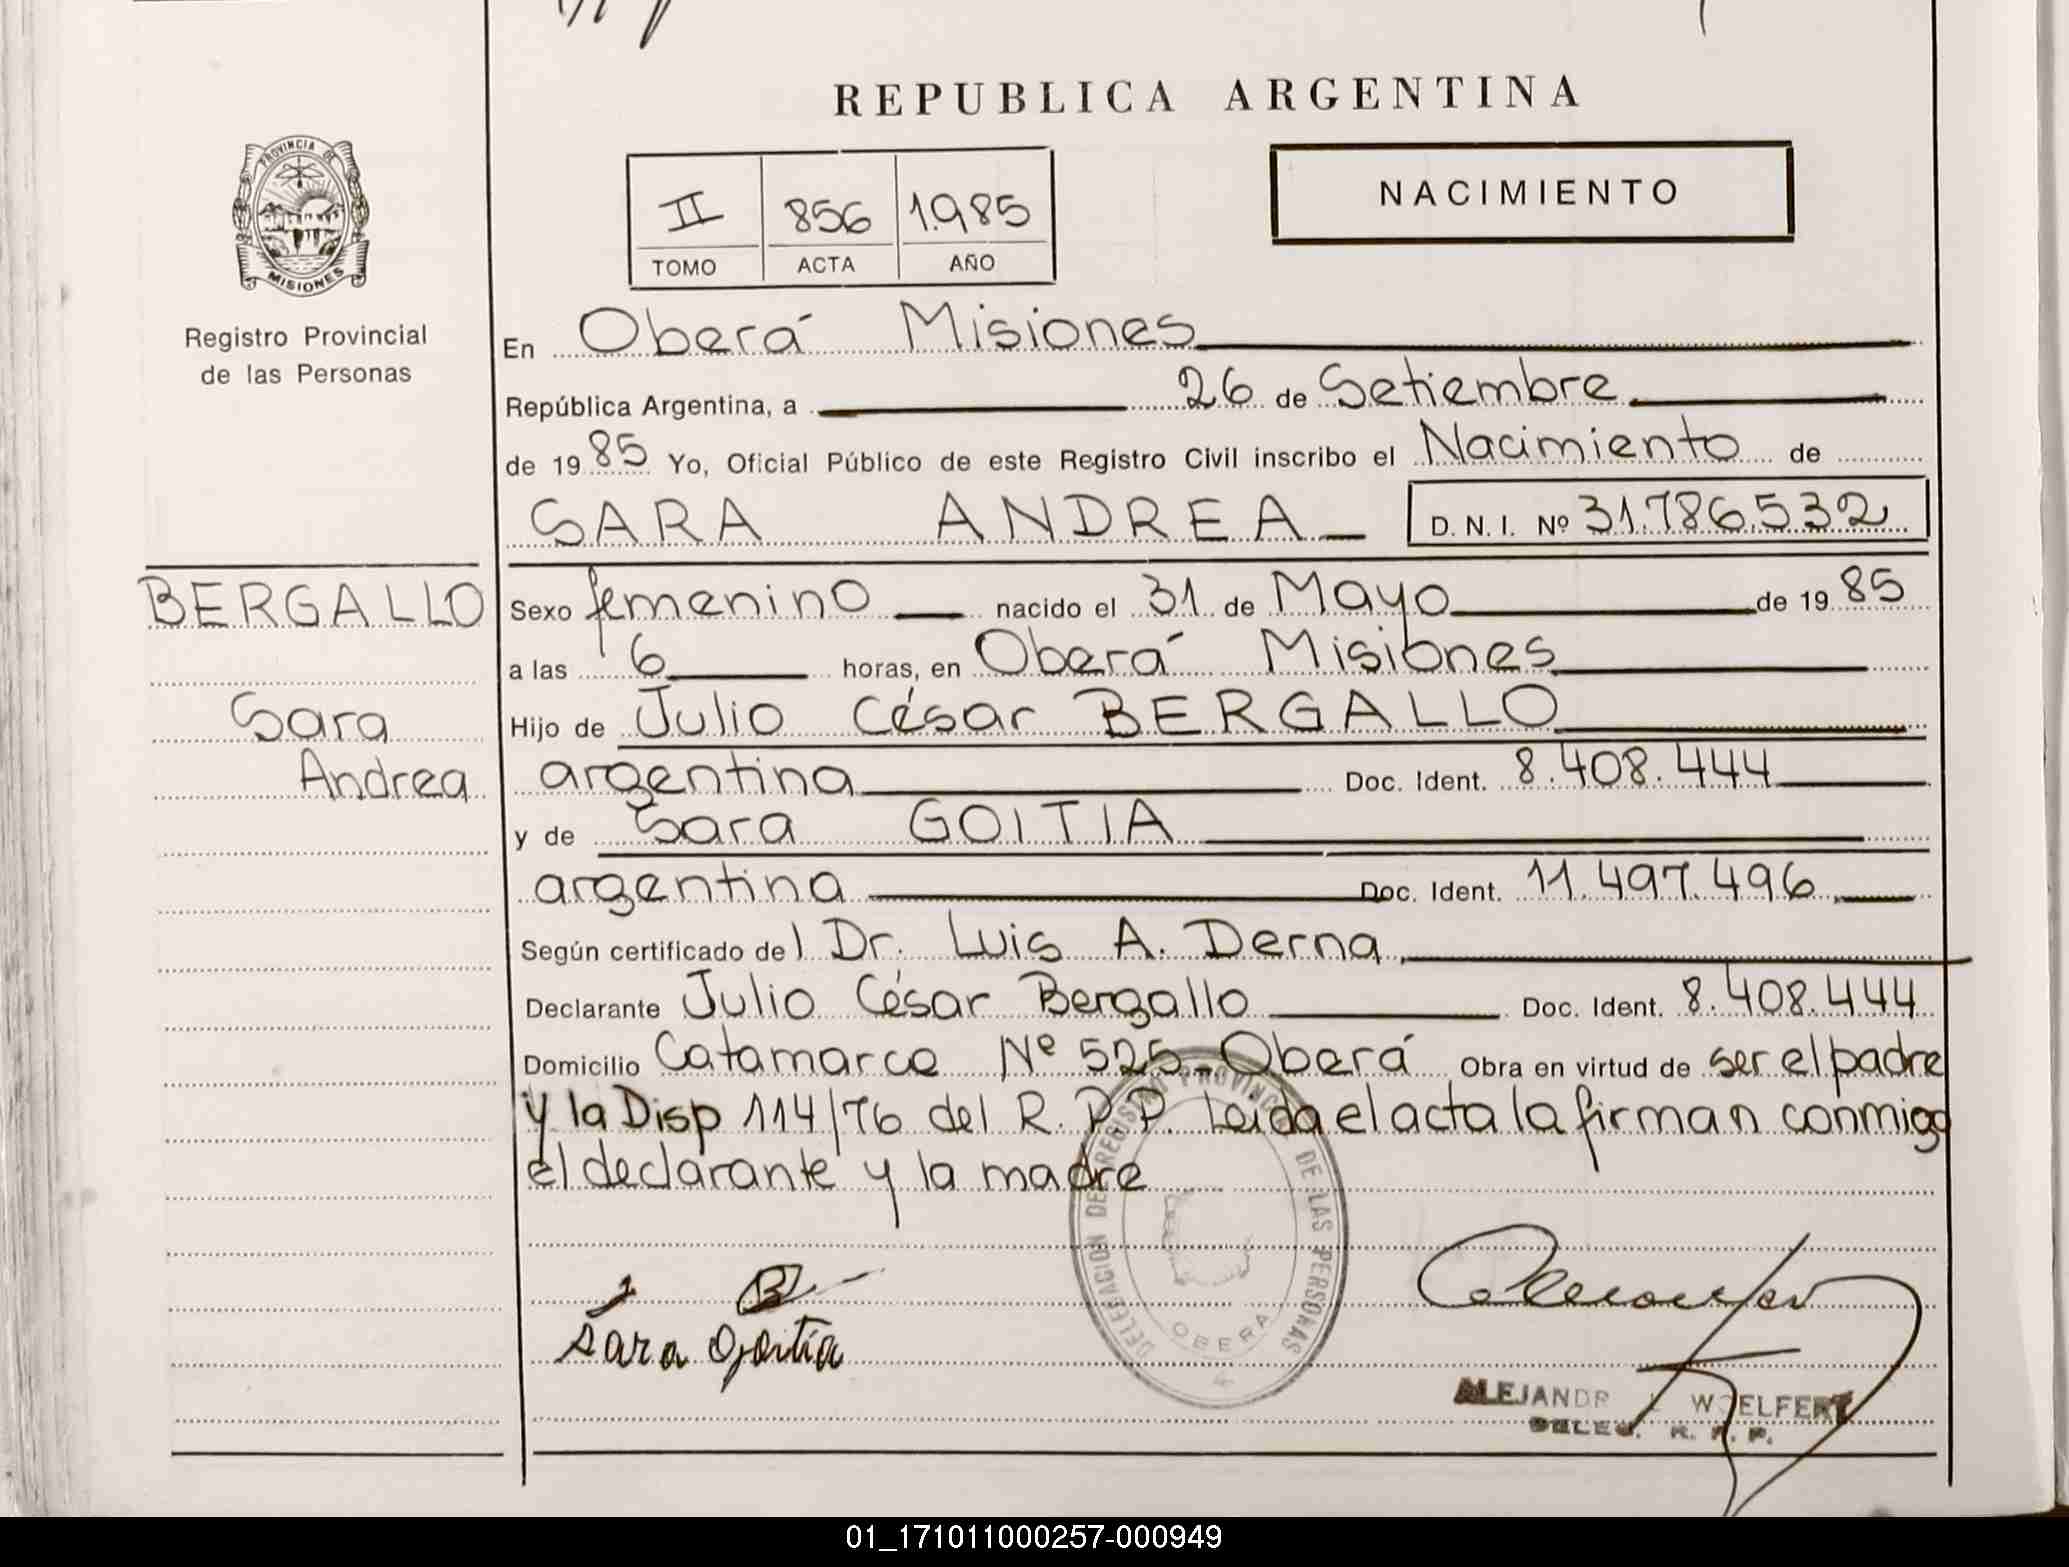 REPUBLICA ARGENTINA
PROVINCIA DE MISIONES
Registro Provincial
de las Personas
II 856 1.985
TOMO ACTA AÑO
NACIMIENTO
En Oberá Misiones
República Argentina, a 26 de Setiembre
de 1985 Yo, Oficial Público de este Registro Civil inscribo el Nacimiento de
SARA ANDREA D. N. I. Nº 31.786.532
BERGALLO
Sara
Andrea
Sexo femenino nacido el 31 de Mayo de 1985
a las 6 horas, en Oberá Misiones
Hijo de Julio César BERGALLO
argentina Doc. Ident. 8.408.444
y de Sara GOITIA
argentina Doc. Ident. 11.497.496
Según certificado del Dr. Luis A. Derna
Declarante Julio César Bergallo Doc. Ident. 8.408.444
Domicilio Catamarca Nº 525 - Oberá Obra en virtud de ser el padre
y la Disp 114/76 del R.P.P. Leida el acta la firman conmigo
el declarante y la madre
DELEGACION DEL REGISTRO PROVINCIAL DE LAS PERSONAS
OBERA
Sara Goitia
ALEJANDR WOELFERT
DELEG. R. P. P.
01_171011000257-000949